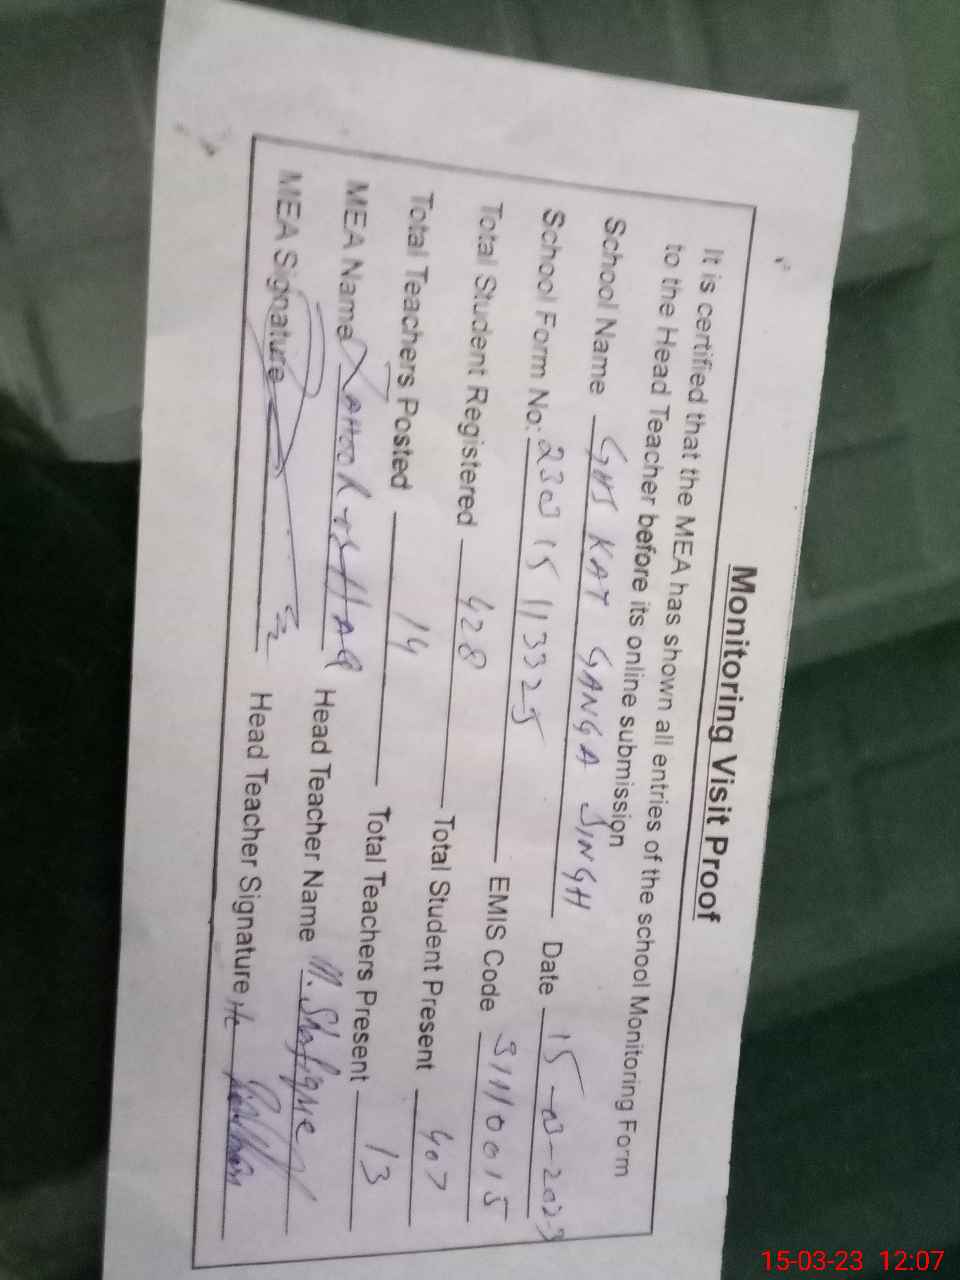 Monitoring Visit Proof
It is certified that the MEA has shown all entries of the school Monitoring Form
to the Head Teacher before its online submission
School Name GHS KAT GANGA SINGH Date 15-03-2023
School Form No: 230315113325 EMIS Code 31110015
Total Student Registered 428 Total Student Present 407
Total Teachers Posted 14 Total Teachers Present 13
MEA Name Head Teacher Name M. Shafique
MEA Signature Head Teacher Signature
15-03-23 12:07